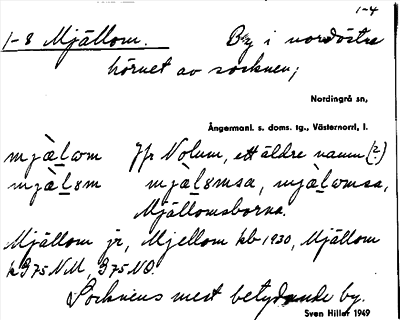 1-4
1-8 Mjällom. By i nordöstra
hörnet av socknen;
Nordingrå sn,
Ångermanl. s. doms. tg., Västernorrl. l.
mjàḷɷm Jfr Nolum, ett äldre namn (?)
mjàḷɜm mjàḷɜmsa, mjàḷɷmsa,
Mjällomsborna.
Mjällom jr, Mjellom kb 1930, Mjällom
k 375 NV, 375 NO.
Socknens mest betydande by.
Sven Hillof 1949